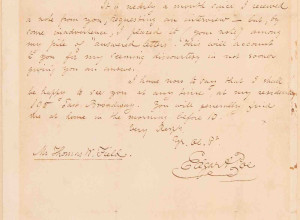 It is nearly a month since I received
a note from you, requesting an interview — but, by
some inadvertence, I placed it (your note) among
my pile of "answered letters". This will account
to you for my seeming discourtesy in not sooner
giving you an answer.
I have now to say that I shall
be happy to see you at any time, at my residence,
East Broadway. You will generally find
me at home in the morning before 10.
Very Resp.
Yr. Ob. St
Edgar A Poe
Mr Thomas W. Field.